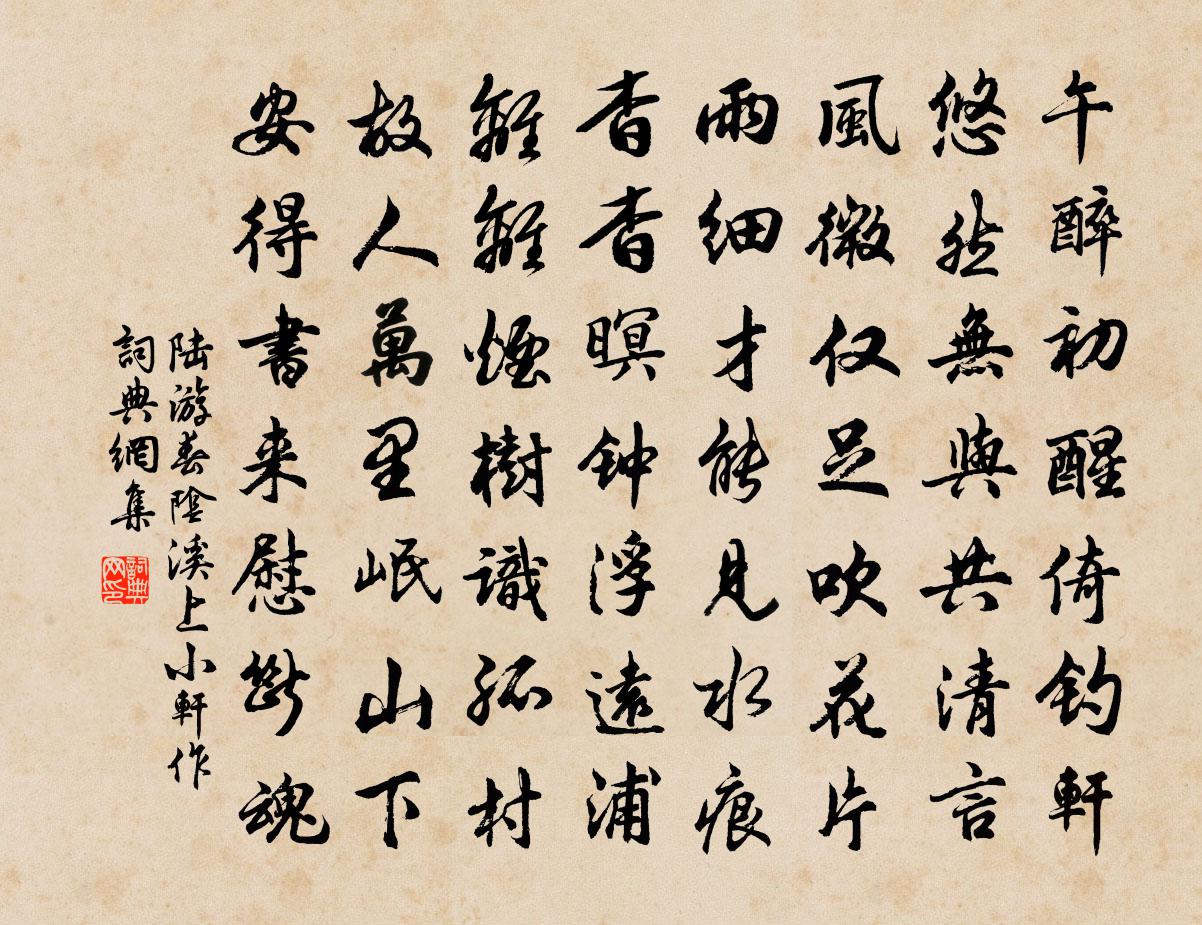 午醉初醒倚钓軒
悠然無與共清言
風微仅足吹花片
雨細才能見水痕
杳杳暝钟浮遠浦
離離煙樹識孤村
故人萬里岷山下
安得書来慰斷魂
陸游春陰溪上小軒作
詞典網集
詞典网印